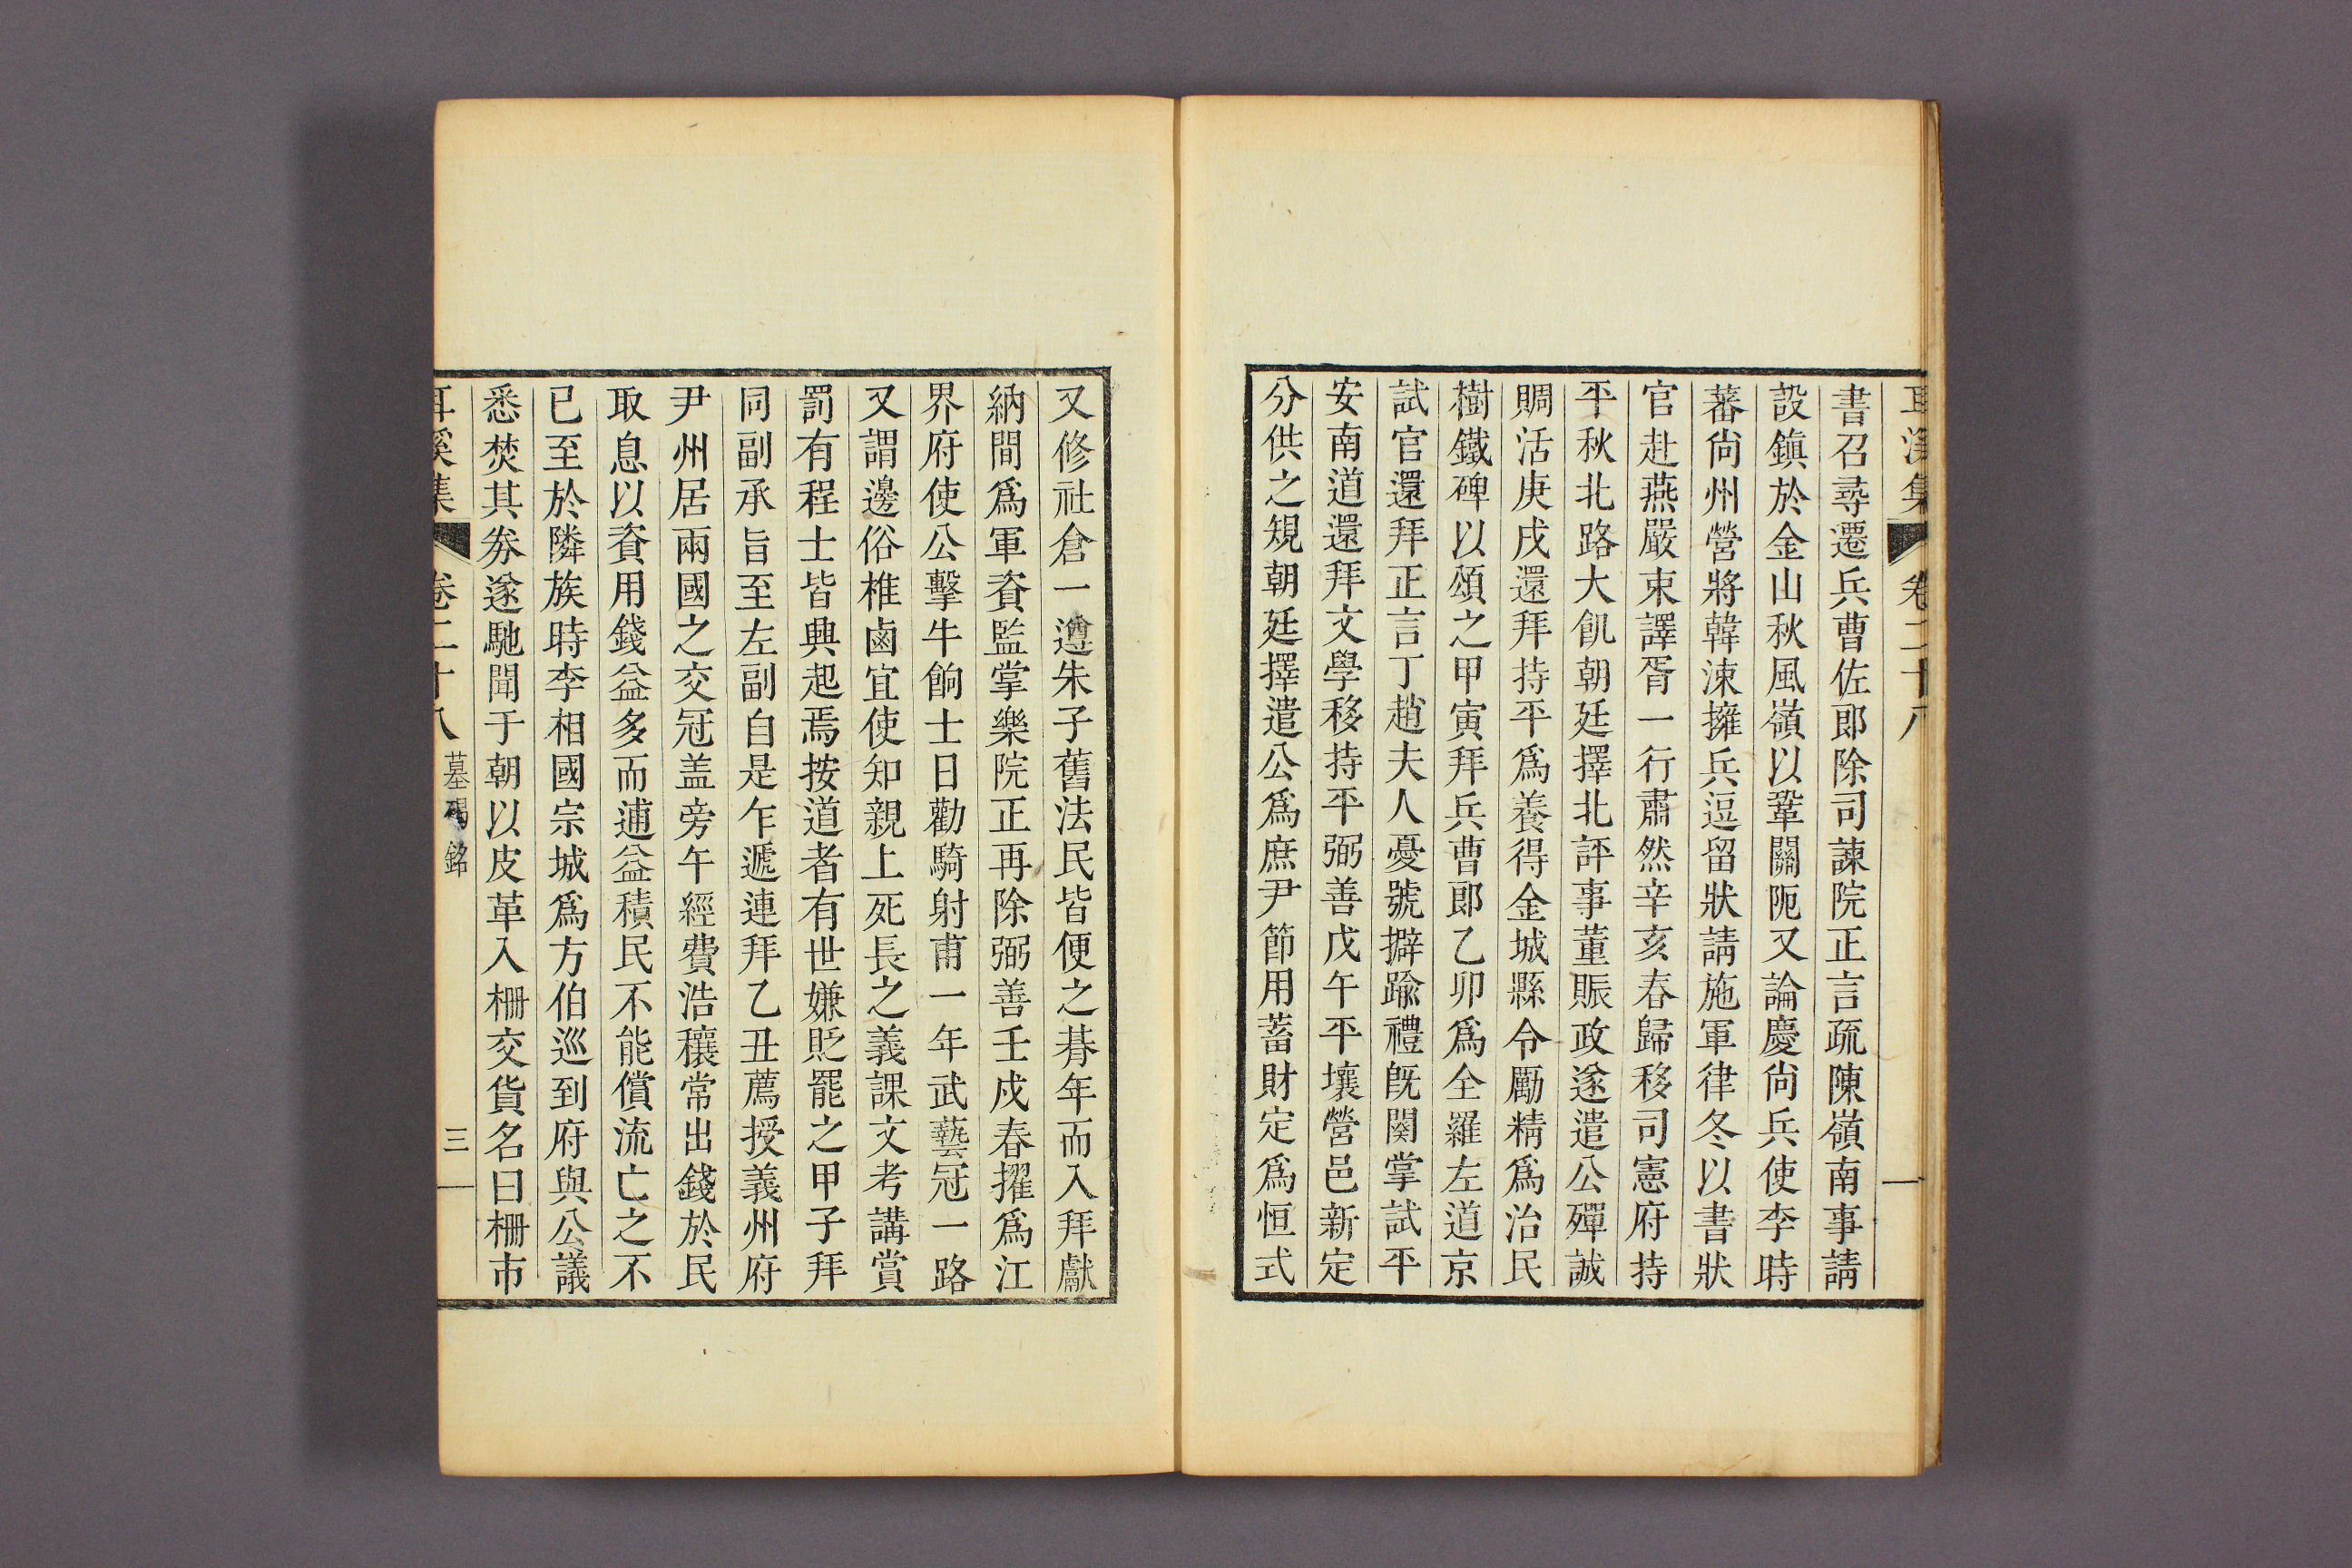 耳溪集 卷二十八
書召尋遷兵曹佐郎除司諫院正言疏陳嶺南事請
設鎮於金山秋風嶺以鞏關阨又論慶尙兵使李時
蕃尙州營將韓涑擁兵逗留狀請施軍律冬以書狀
官赴燕嚴束譯胥一行肅然辛亥春歸移司憲府持
平秋北路大飢朝廷擇北評事董賑政遂遣公殫誠
賙活庚戌還拜持平爲養得金城縣令勵精爲治民
樹鐵碑以頌之甲寅拜兵曹郎乙卯爲全羅左道京
試官還拜正言丁趙夫人憂號擗踰禮旣闋掌試平
安南道還拜文學移持平弼善戊午平壤營邑新定
分供之規朝廷擇遣公爲庶尹節用蓄財定爲恒式
又修社倉一遵朱子舊法民皆便之朞年而入拜獻
納間爲軍資監掌樂院正再除弼善壬戌春擢爲江
界府使公擊牛餉士日勸騎射甫一年武藝冠一路
又謂邊俗椎鹵宜使知親上死長之義課文考講賞
罰有程士皆興起焉按道者有世嫌貶罷之甲子拜
同副承旨至左副自是乍遞連拜乙丑薦授義州府
尹州居兩國之交冠盖旁午經費浩穰常出錢於民
取息以資用錢益多而逋益積民不能償流亡之不
已至於隣族時李相國宗城爲方伯巡到府與公議
悉焚其券遂馳聞于朝以皮革入柵交貨名曰柵市
耳溪集 卷二十八 墓碣銘 三